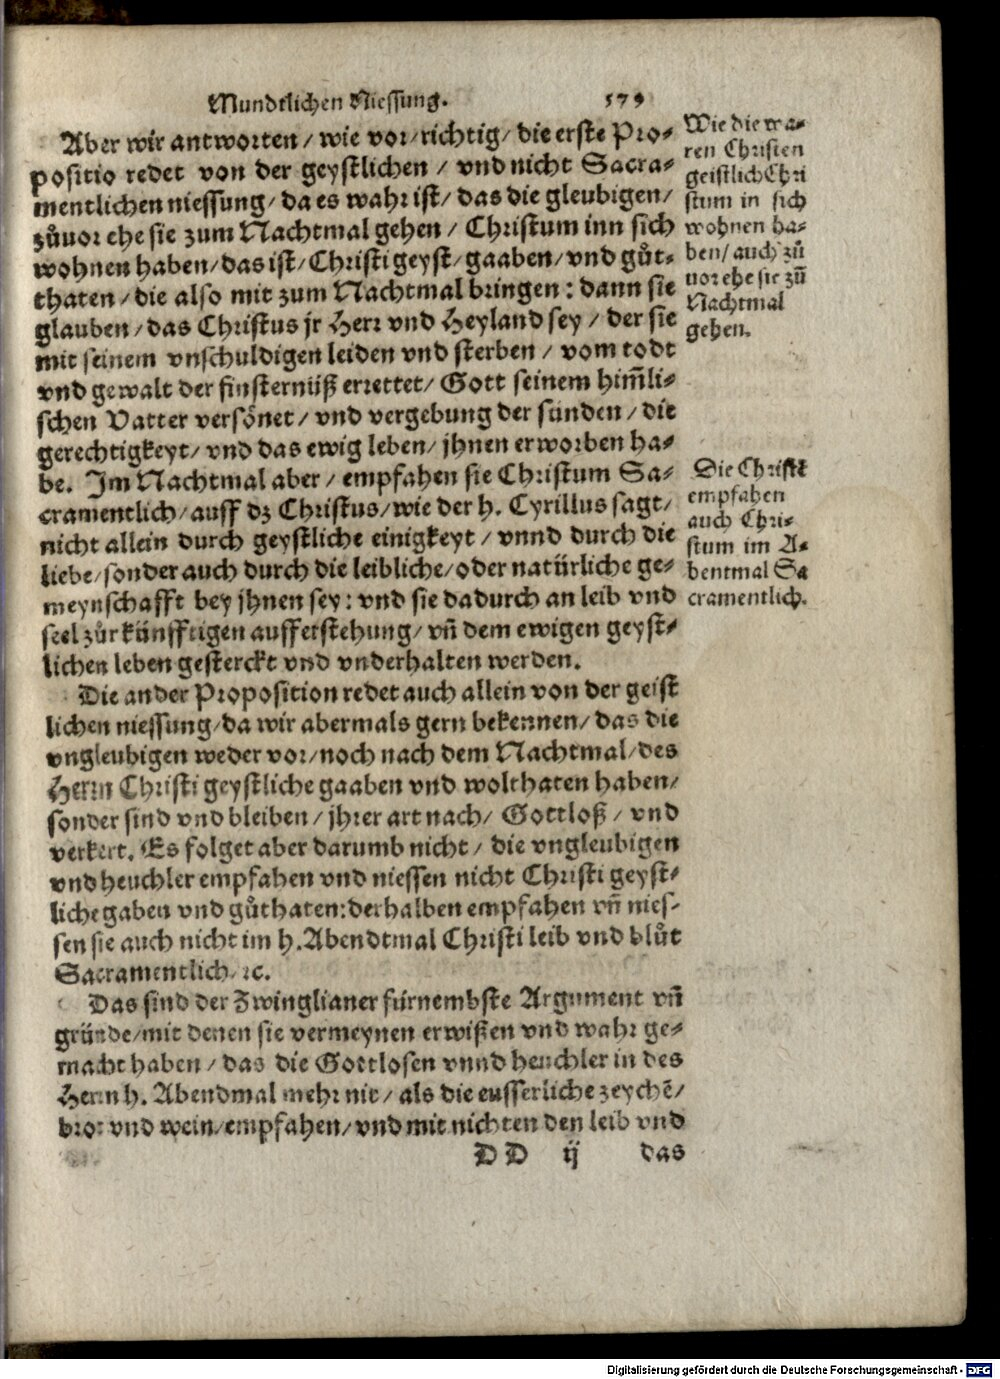 Mundtlichen Niessung. 579
Aber wir antworten / wie vor / richtig / die erste Pro-
positio redet von der geystlichen / vnd nicht Sacra-
mentlichen niessung / da es wahr ist / das die gleubigen /
zůuor ehe sie zum Nachtmal gehen / Christum inn sich
wohnen haben / das ist / Christi geyst / gaaben / vnd gůt-
thaten / die also mit zum Nachtmal bringen : dann sie
glauben / das Christus jr Herr vnd Heyland sey / der sie
mit seinem vnschuldigen leiden vnd sterben / vom todt
vnd gewalt der finsternüß errettet / Gott seinem him̄li-
schen Vatter versönet / vnd vergebung der sünden / die
gerechtigkeyt / vnd das ewig leben / jhnen erworben ha-
be. Im Nachtmal aber / empfahen sie Christum Sa-
cramentlich / auff dz Christus / wie der h. Cyrillus sagt /
nicht allein durch geystliche einigkeyt / vnnd durch die
liebe / sonder auch durch die leibliche / oder natürliche ge-
meynschafft bey jhnen sey : vnd sie dadurch an leib vnd
seel zůr künfftigen aufferstehung / vn̄ dem ewigen geyst-
lichen leben gesterckt vnd vnderhalten werden.
Die ander Proposition redet auch allein von der geist
lichen niessung / da wir abermals gern bekennen / das die
vngleubigen weder vor / noch nach dem Nachtmal / des
Herrn Christi geystliche gaaben vnd wolthaten haben /
sonder sind vnd bleiben / jhrer art nach / Gottloß / vnd
verkert. Es folget aber darumb nicht / die vngleubigen
vnd heuchler empfahen vnd niessen nicht Christi geyst-
liche gaben vnd gůthaten : derhalben empfahen vn̄ nies-
sen sie auch nicht im h. Abendtmal Christi leib vnd blůt
Sacramentlich / ꝛc.
Das sind der Zwinglianer fürnembste Argument vn̄
gründe / mit denen sie vermeynen erwißen vnd wahr ge-
macht haben / das die Gottlosen vnnd heuchler in des
Herrn h. Abendmal mehr nit / als die eusserliche zeychē /
brot vnd wein / empfahen / vnd mit nichten den leib vnd
DD ij das
Wie die wa-
ren Christen
geistlich Chri
stum in sich
wohnen ha-
ben / auch zů
uor ehe sie zū
Nachtmal
gehen.
Die Christē
empfahen
auch Chri-
stum im A-
bentmal Sa
cramentlich.
Digitalisierung gefördert durch die Deutsche Forschungsgemeinschaft - DFG